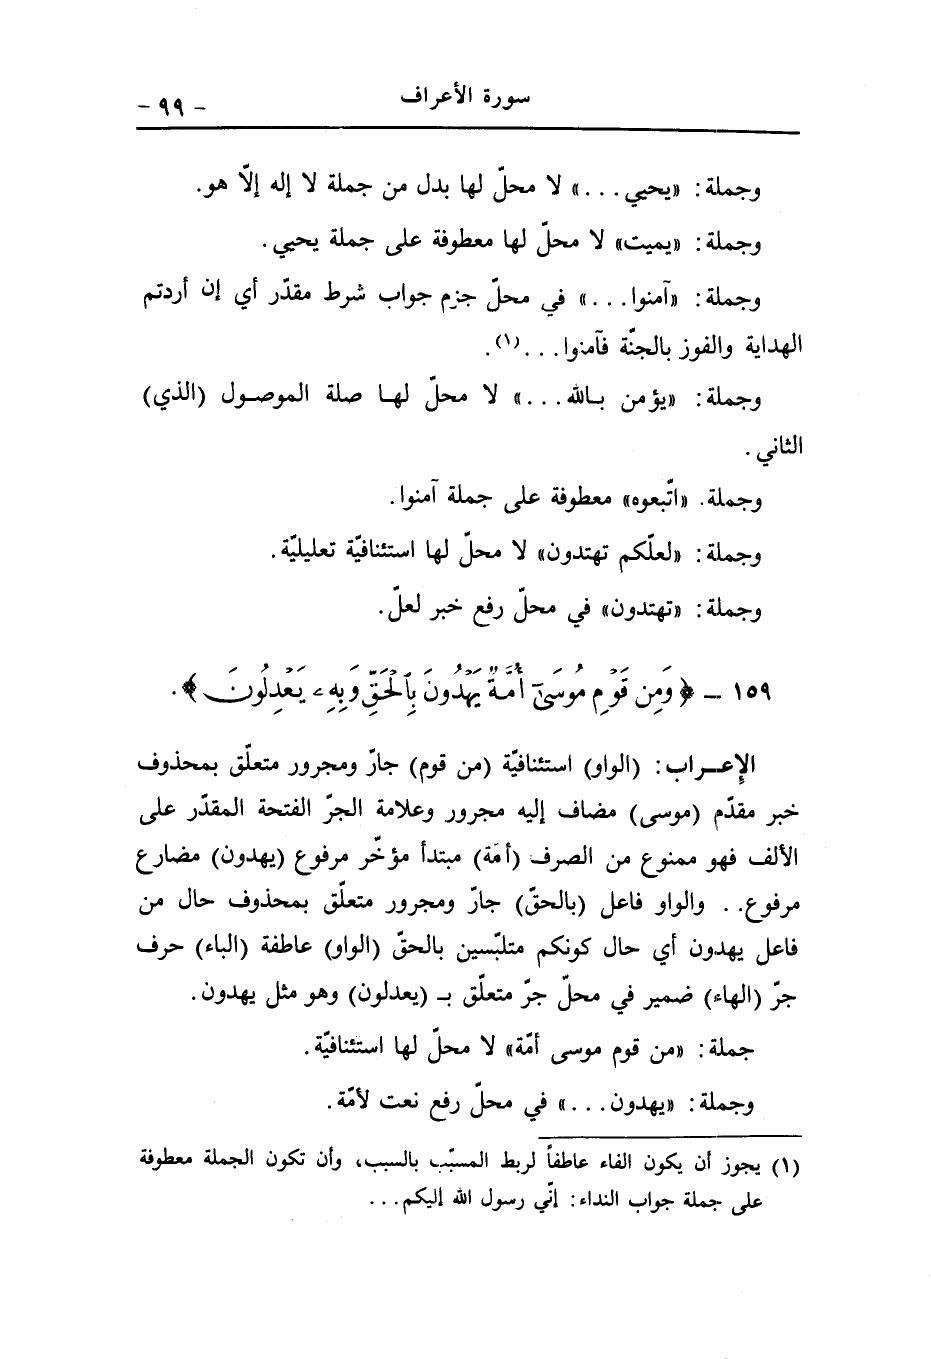 سورة الأعراف
- ٩٩ -
وجملة: «يحيي...» لا محلّ لها بدل من جملة لا إله إلاّ هو.
وجملة: «يميت» لا محلّ لها معطوفة على جملة يحيي.
وجملة: «آمنوا...» في محلّ جزم جواب شرط مقدّر أي إن أردتم
الهداية والفوز بالجنّة فآمنوا...(١).
وجملة: «يؤمن بالله...» لا محلّ لها صلة الموصول (الذي)
الثاني.
وجملة. «اتّبعوه» معطوفة على جملة آمنوا.
وجملة: «لعلّكم تهتدون» لا محلّ لها استئنافيّة تعليليّة.
وجملة: «تهتدون» في محلّ رفع خبر لعلّ.
١٥٩ - ﴿وَمِن قَوْمِ مُوسَىٰٓ أُمَّةٌ يَهْدُونَ بِٱلْحَقِّ وَبِهِۦ يَعْدِلُونَ﴾.
الإعراب: (الواو) استئنافيّة (من قوم) جارّ ومجرور متعلّق بمحذوف
خبر مقدّم (موسى) مضاف إليه مجرور وعلامة الجرّ الفتحة المقدّر على
الألف فهو ممنوع من الصرف (أمّة) مبتدأ مؤخّر مرفوع (يهدون) مضارع
مرفوع.. والواو فاعل (بالحقّ) جارّ ومجرور متعلّق بمحذوف حال من
فاعل يهدون أي حال كونكم متلبّسين بالحقّ (الواو) عاطفة (الباء) حرف
جرّ (الهاء) ضمير في محلّ جرّ متعلّق بـ (يعدلون) وهو مثل يهدون.
جملة: «من قوم موسى أمّة» لا محلّ لها استئنافيّة.
وجملة: «يهدون...» في محلّ رفع نعت لأمّة.
(١) يجوز أن يكون الفاء عاطفاً لربط المسبّب بالسبب، وأن تكون الجملة معطوفة
على جملة جواب النداء: إنّي رسول الله إليكم...